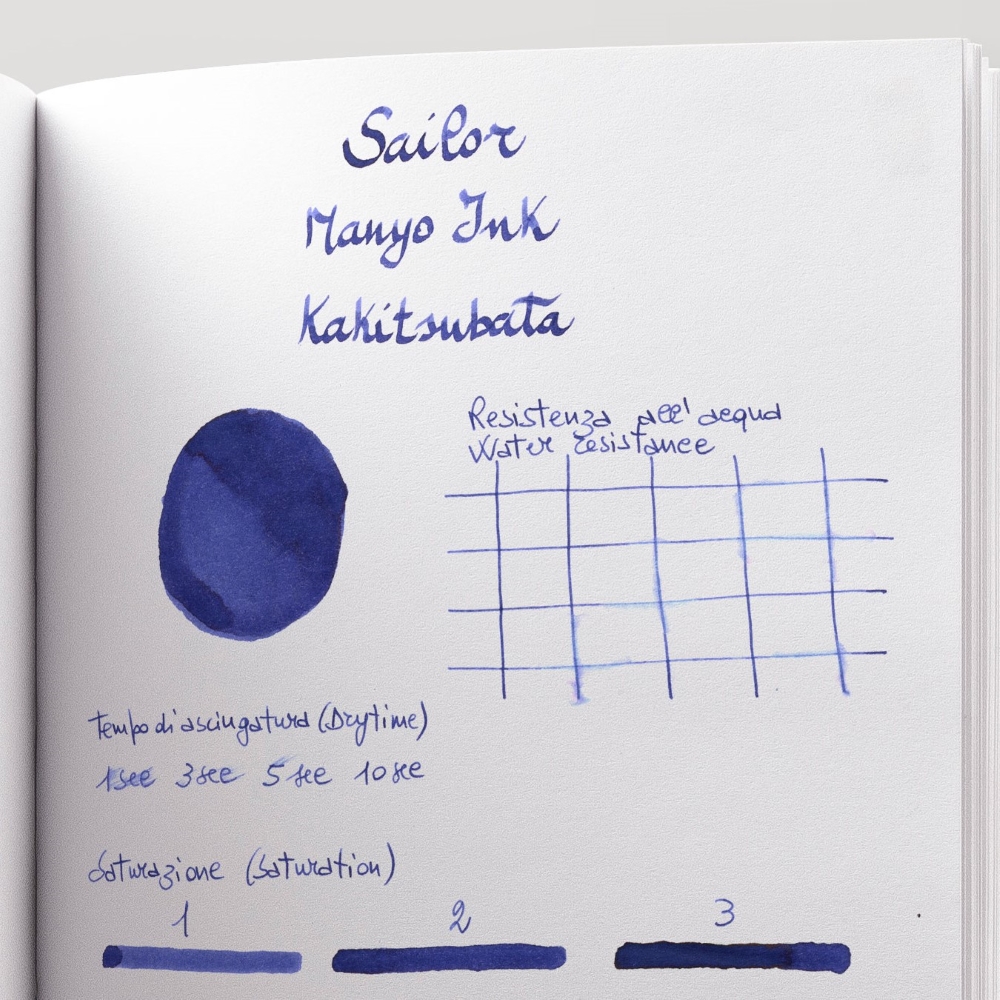 Sailor
Manyo Ink
Kakitsubata
Resistenza all'acqua
Water resistance
Tempo di asciugatura (Drytime)
1 sec 3 sec 5 sec 10 sec
Saturazione (Saturation)
1 2 3